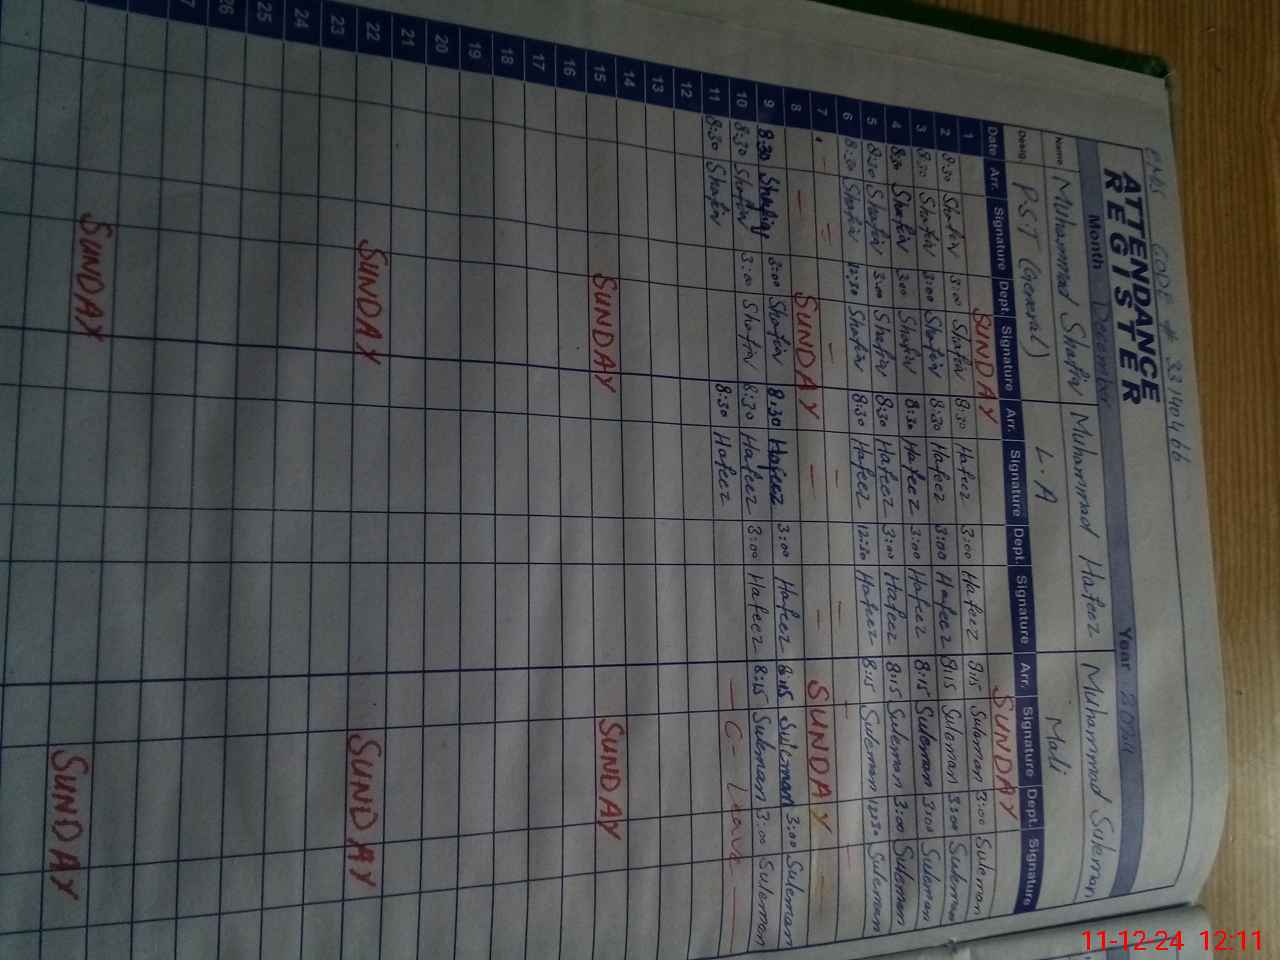 EMIS CODE # 33140466
ATTENDANCE
REGISTER
Month December Year 2024
Name Muhammad Shafiq Muhammad Hafeez Muhammad Suleman
Desig. PST (General) L.A Mali
Date Arr. Signature Dept. Signature Arr. Signature Dept. Signature Arr. Signature Dept. Signature
1 SUNDAY SUNDAY
2 8:30 Shafiq 3:00 Shafiq 8:30 Hafeez 3:00 Hafeez 8:15 Suleman 3:00 Suleman
3 8:30 Shafiq 3:00 Shafiq 8:30 Hafeez 3:00 Hafeez 8:15 Suleman 3:00 Suleman
4 8:30 Shafiq 3:00 Shafiq 8:30 Hafeez 3:00 Hafeez 8:15 Suleman 3:00 Suleman
5 8:30 Shafiq 3:00 Shafiq 8:30 Hafeez 3:00 Hafeez 8:15 Suleman 3:00 Suleman
6 8:30 Shafiq 12:30 Shafiq 8:30 Hafeez 12:30 Hafeez 8:15 Suleman 12:30 Suleman
7
8 SUNDAY SUNDAY
9 8:30 Shafiq 3:00 Shafiq 8:30 Hafeez 3:00 Hafeez 8:15 Suleman 3:00 Suleman
10 8:30 Shafiq 3:00 Shafiq 8:30 Hafeez 3:00 Hafeez 8:15 Suleman 3:00 Suleman
11 8:30 Shafiq 8:30 Hafeez C- Leave
12
13
14
15 SUNDAY SUNDAY
16
17
18
19
20
21
22 SUNDAY SUNDAY
23
24
25
26
SUNDAY SUNDAY
11-12-24 12:11